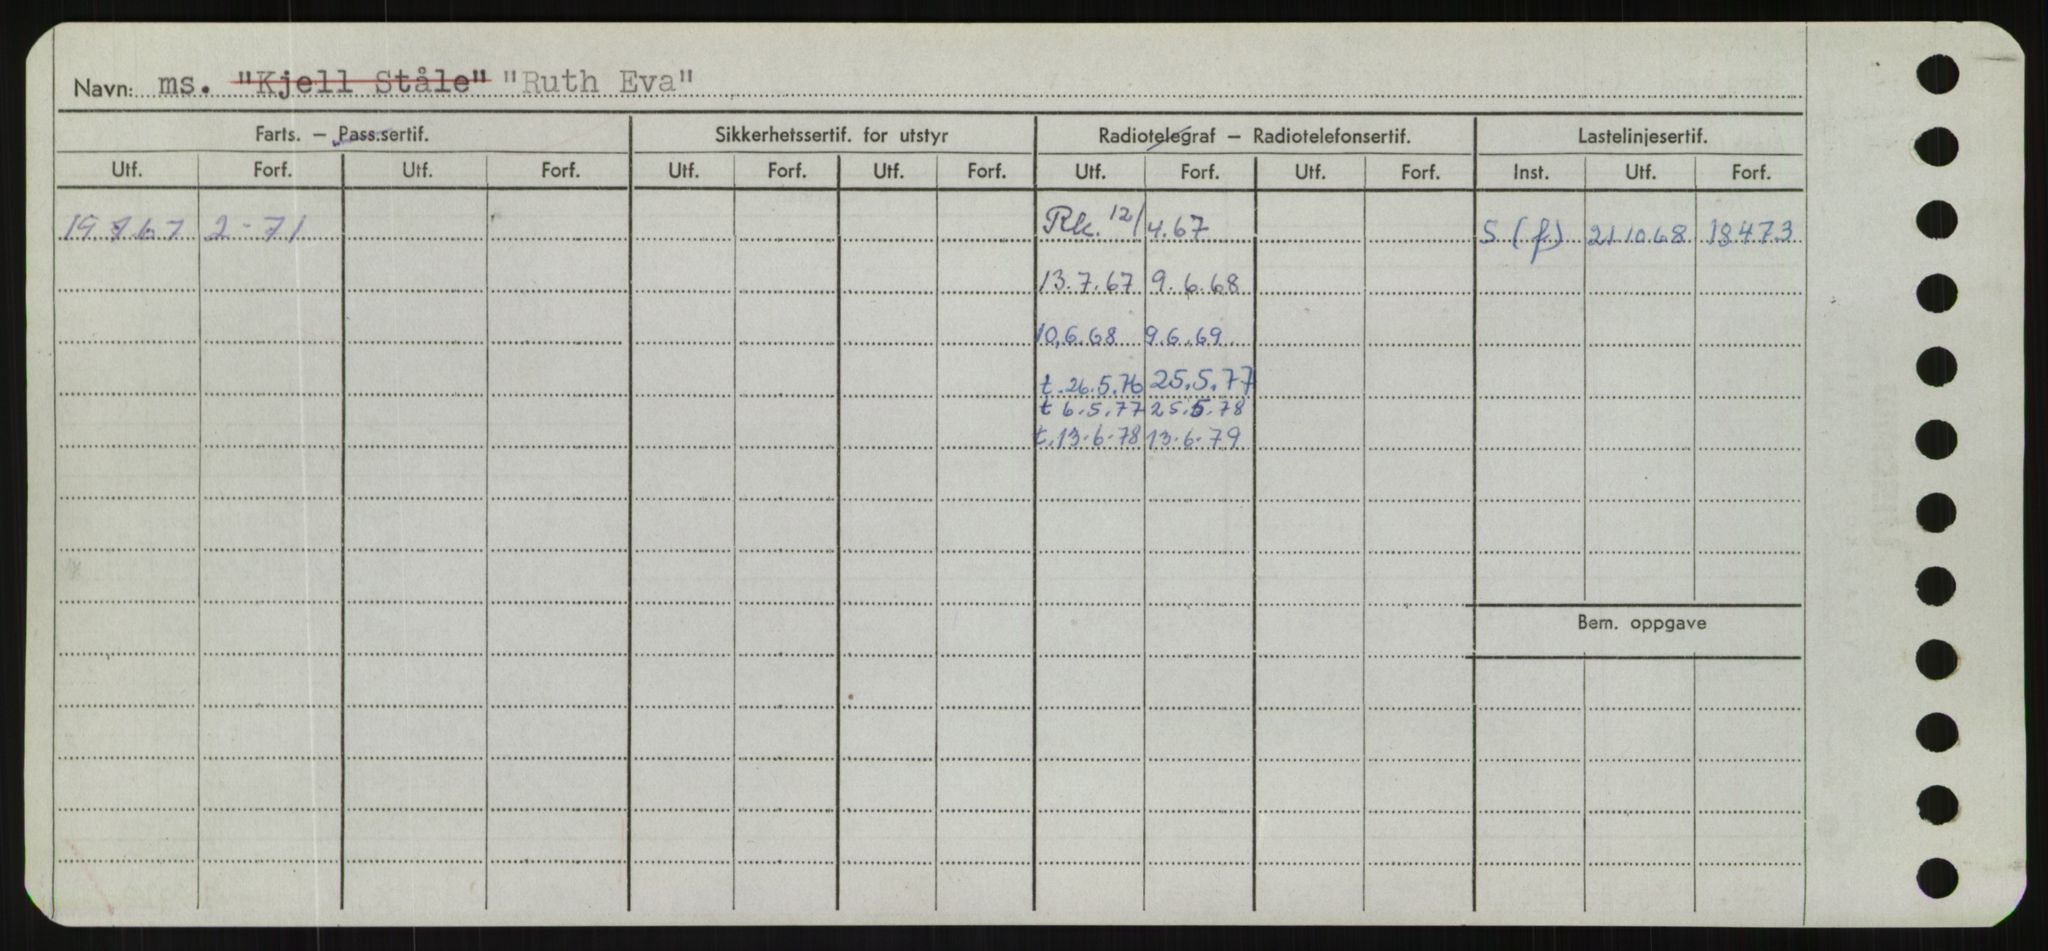 Navn: ms. "Kjell Ståle" "Ruth Eva"
Farts. — Pass.sertif. Sikkerhetssertif. for utstyr Radiotelegraf — Radiotelefonsertif. Lastelinjesertif.
Utf. Forf. Utf. Forf. Utf. Forf. Utf. Forf. Utf. Forf. Utf. Forf. Inst. Utf. Forf.
19.7.67 2-71 Rk. 12/4.67 S (f) 21.10.68 18473
13.7.67 9.6.68
10.6.68 9.6.69
t.26.5.76 25.5.77
t 6.5.77 25.5.78
t.13-6-78 13-6-79
Bem. oppgave